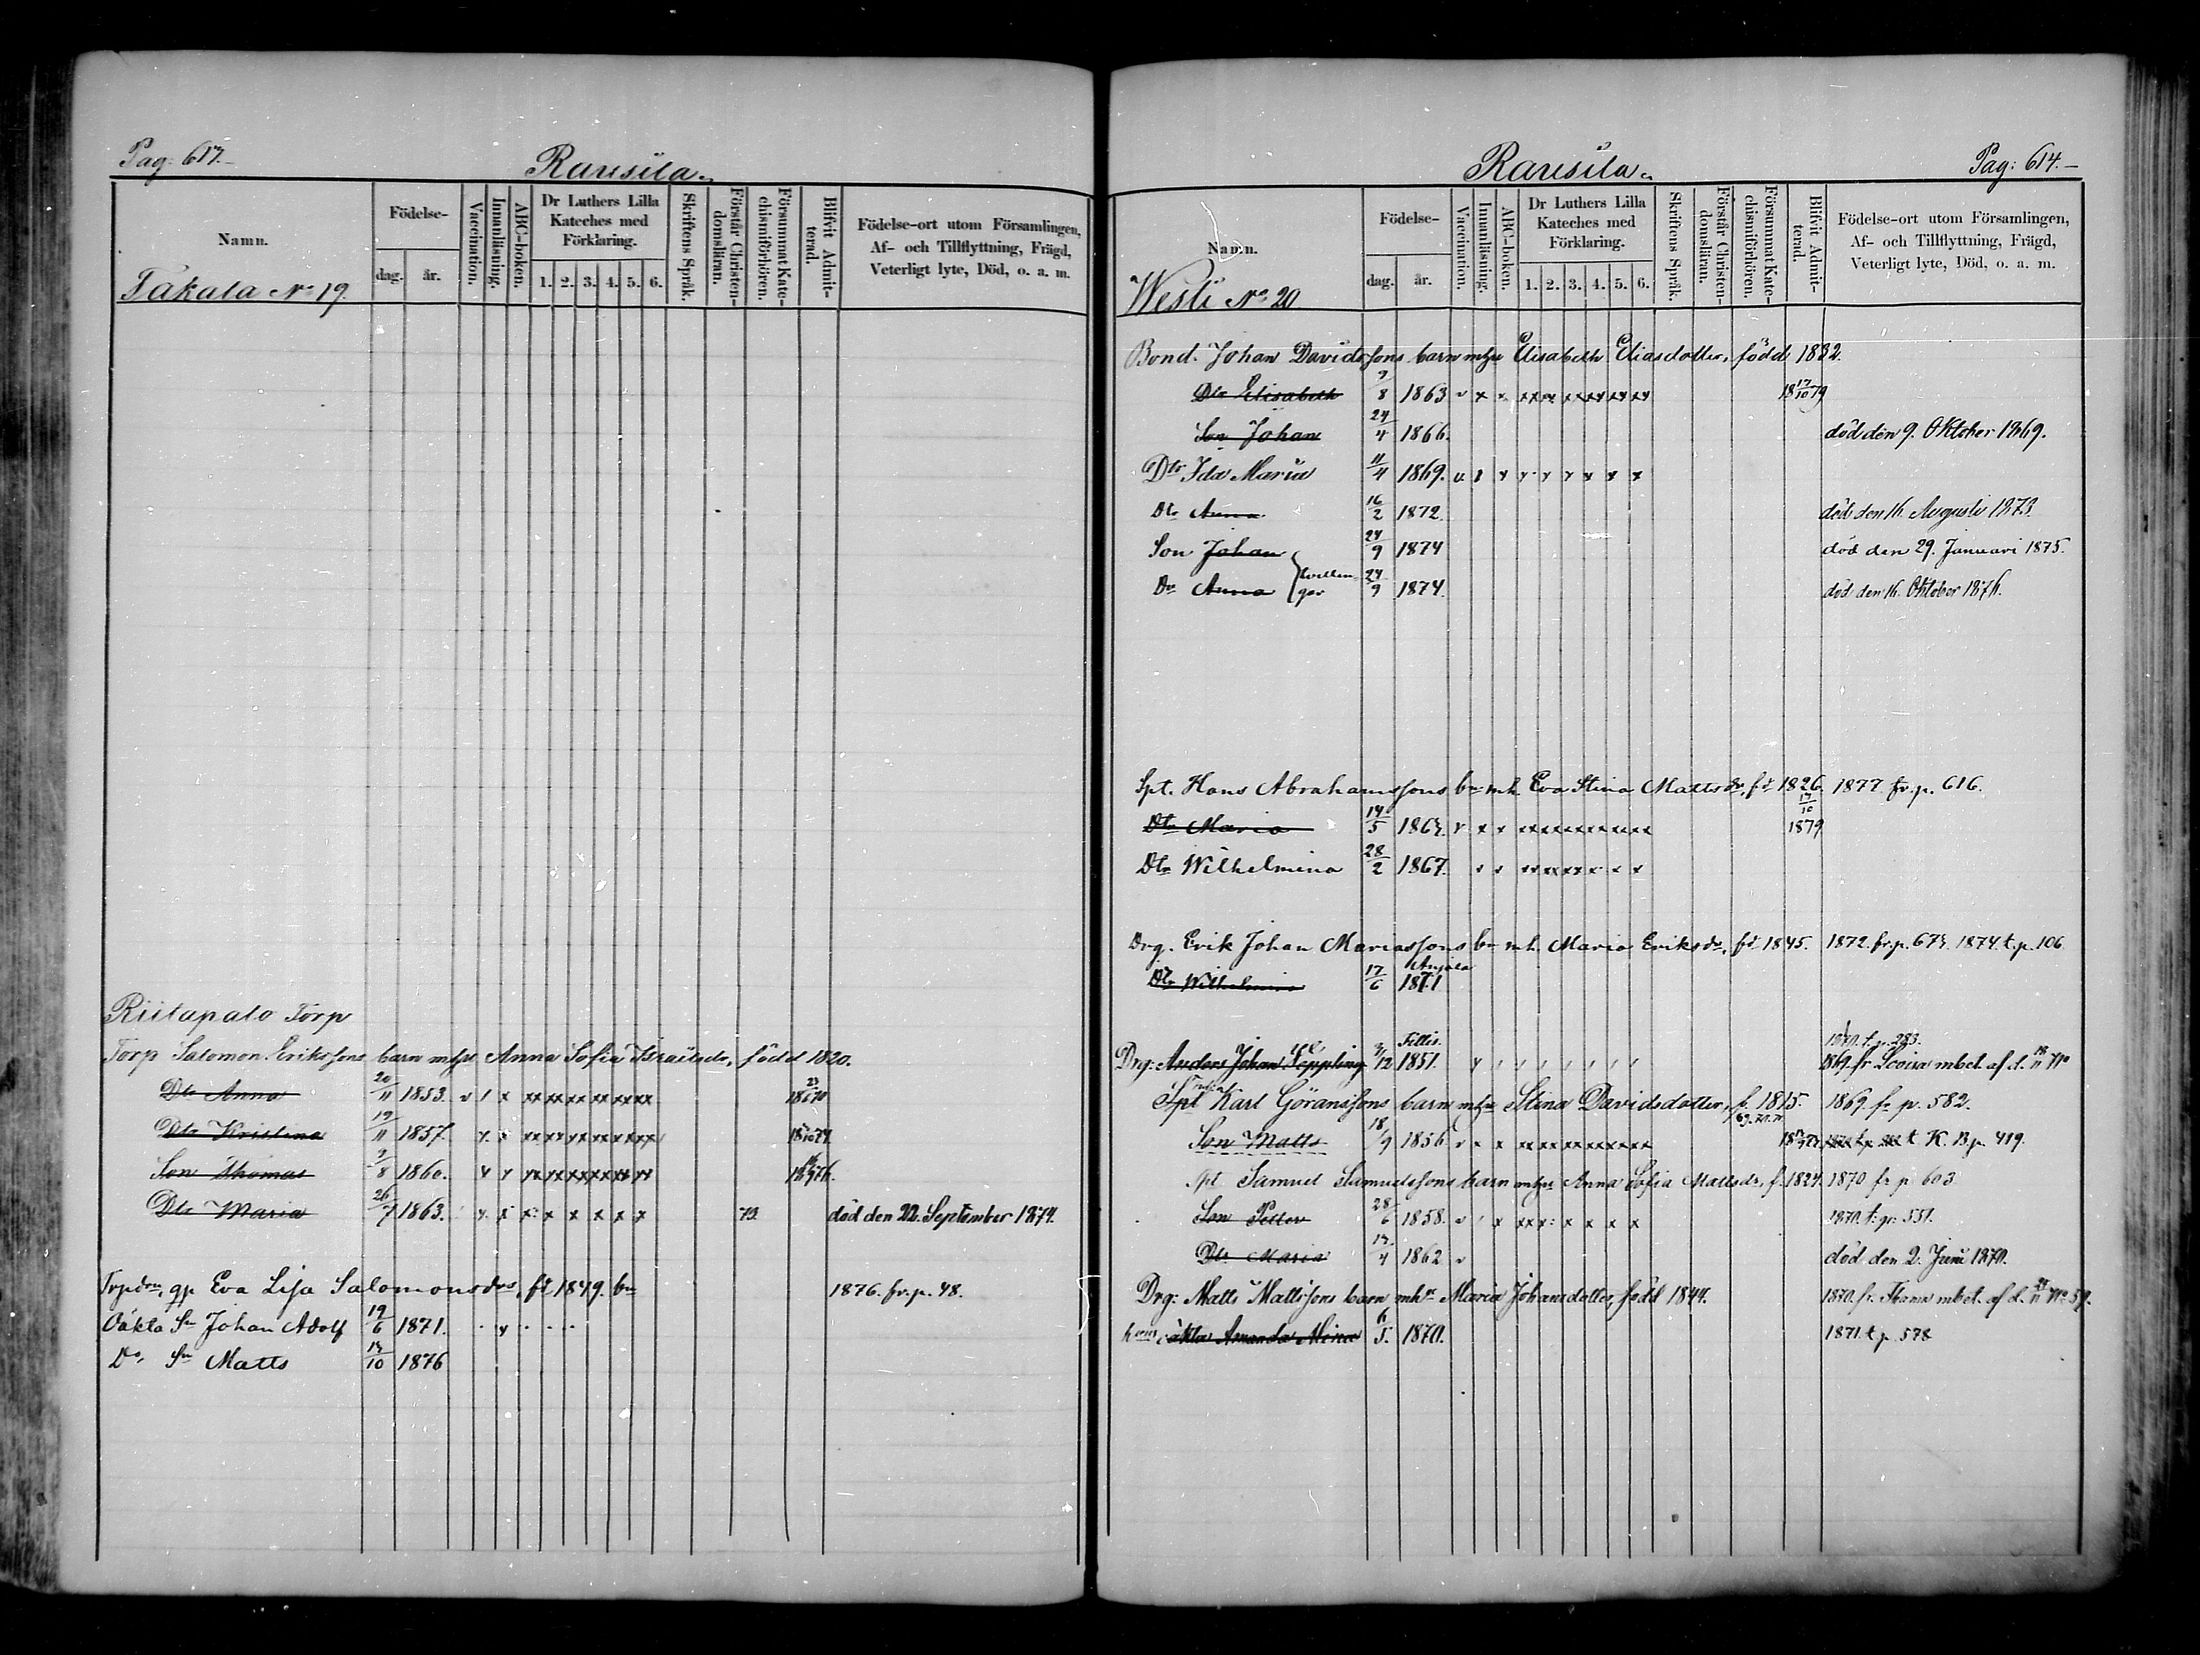 Pag: 617.
Rausila.
Namn.
Födelse-
dag.
år.
Vaccination.
Innanläsning.
ABC-boken.
Dr Luthers Lilla
Kateches med
Förklaring.
1. 2. 3. 4. 5. 6.
Skriftens Språk.
Förstår Christen-
domsläran.
Försummat Kate-
chismiförhören.
Blifvit Admit-
terad.
Födelse-ort utom Församlingen,
Af- och Tillflyttning, Frägd,
Veterligt lyte, Död, o. a. m.
Takala No 19.
Riitapalo Torp
Torp Salomon Erikssons barn mhu Anna Sofia Israelsdr, född 1820.
Dtr Anna 20/11 1853.
Dtr Kristina 19/11 1857.
Son Thomas 3/8 1860.
Dtr Maria 26/7 1863. 73. död den 22. September 1874.
Trpdr, qp Eva Lisa Salomonsdr, fd 1849. bn 1876. fr. p. 48.
Oäkta Sn Johan Adolf 19/6 1871.
Do Sn Matts 13/10 1876
Rausila.
Pag: 614.
Namn.
Födelse-
dag.
år.
Vaccination.
Innanläsning.
ABC-boken.
Dr Luthers Lilla
Kateches med
Förklaring.
1. 2. 3. 4. 5. 6.
Skriftens Språk.
Förstår Christen-
domsläran.
Försummat Kate-
chismiförhören.
Blifvit Admit-
terad.
Födelse-ort utom Församlingen,
Af- och Tillflyttning, Frägd,
Veterligt lyte, Död, o. a. m.
Westi No 20
Bond. Johan Davidssons barn mhu Elisabeth Eliasdotter, född 1832.
Dtr Elisabeth 7/8 1863 18 17/10 79
Son Johan 24/4 1866. död den 9. Oktober 1869.
Dtr Ida Maria 11/4 1869.
Dtr Anna 16/2 1872. död den 16. Augusti 1873.
Son Johan 24/9 1874 död den 29. Januari 1875.
Dr Anna tvillin-gar 24/9 1874. död den 16. Oktober 1876.
Spt. Hans Abrahamssons bn mh. Eva Stina Mattsdr, fd 1826. 1877 fr. p. 616.
Dtr Maria 14/5 1864. 17/10 1879
Dtr Wilhelmina 28/2 1867.
Drg. Erik Johan Mariassons bn mh. Maria Eriksdr, fd 1845. 1872. fr. p. 674. 1874. t. p. 106
Anjala
Dtr Wilhelmina 17/6 1871
Drg: Anders Johan Seppling 3/12 1851. 1869. fr Lovisa mbet. af d.
Spt Karl Göranssons barn mhu Stina Davidsdotter, f. 1815. 1869. fr p. 582.
69. 70. 71
Son Matts 18/9 1856 t. K. B. p. 419.
Spt Samuel Samuelssons barn mhu Anna Sofia Mattsdr, f. 1824. 1870 fr p. 603
Son Petter 28/6 1858. 1870. t. p: 551.
Dtr Maria 13/4 1862 död den 2. Juni 1870.
Drg: Matts Mattssons barn mhu Maria Johansdotter, född 1844. 1870. fr. mbet. af d. No 59.
hans oäkta Amanda Mina 6/5. 1870. 1871. t. p. 578